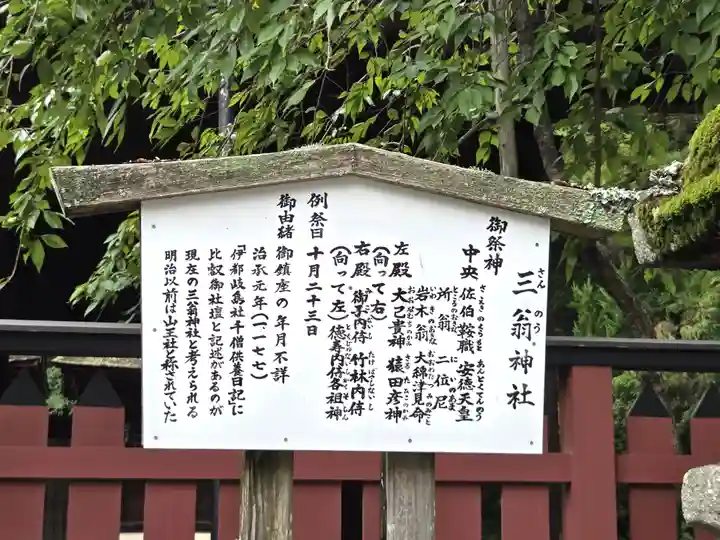 三翁神社
さんのう
御祭神
中央 佐伯鞍職 安徳天皇
所翁 二位尼
岩木翁 大綿津見命
左殿 大己貴神 猿田彦神
(向って右)
右殿 御子内侍 竹林内侍
(向って左) 徳寿内侍各祖神
例祭日 十月二十三日
御由緒 御鎮座の年月不詳
治承元年(一一七七)
「伊都岐島社千僧供養日記」に
比叡御社壇と記述があるのが
現在の三翁神社と考えられる
明治以前は山王社と称されていた